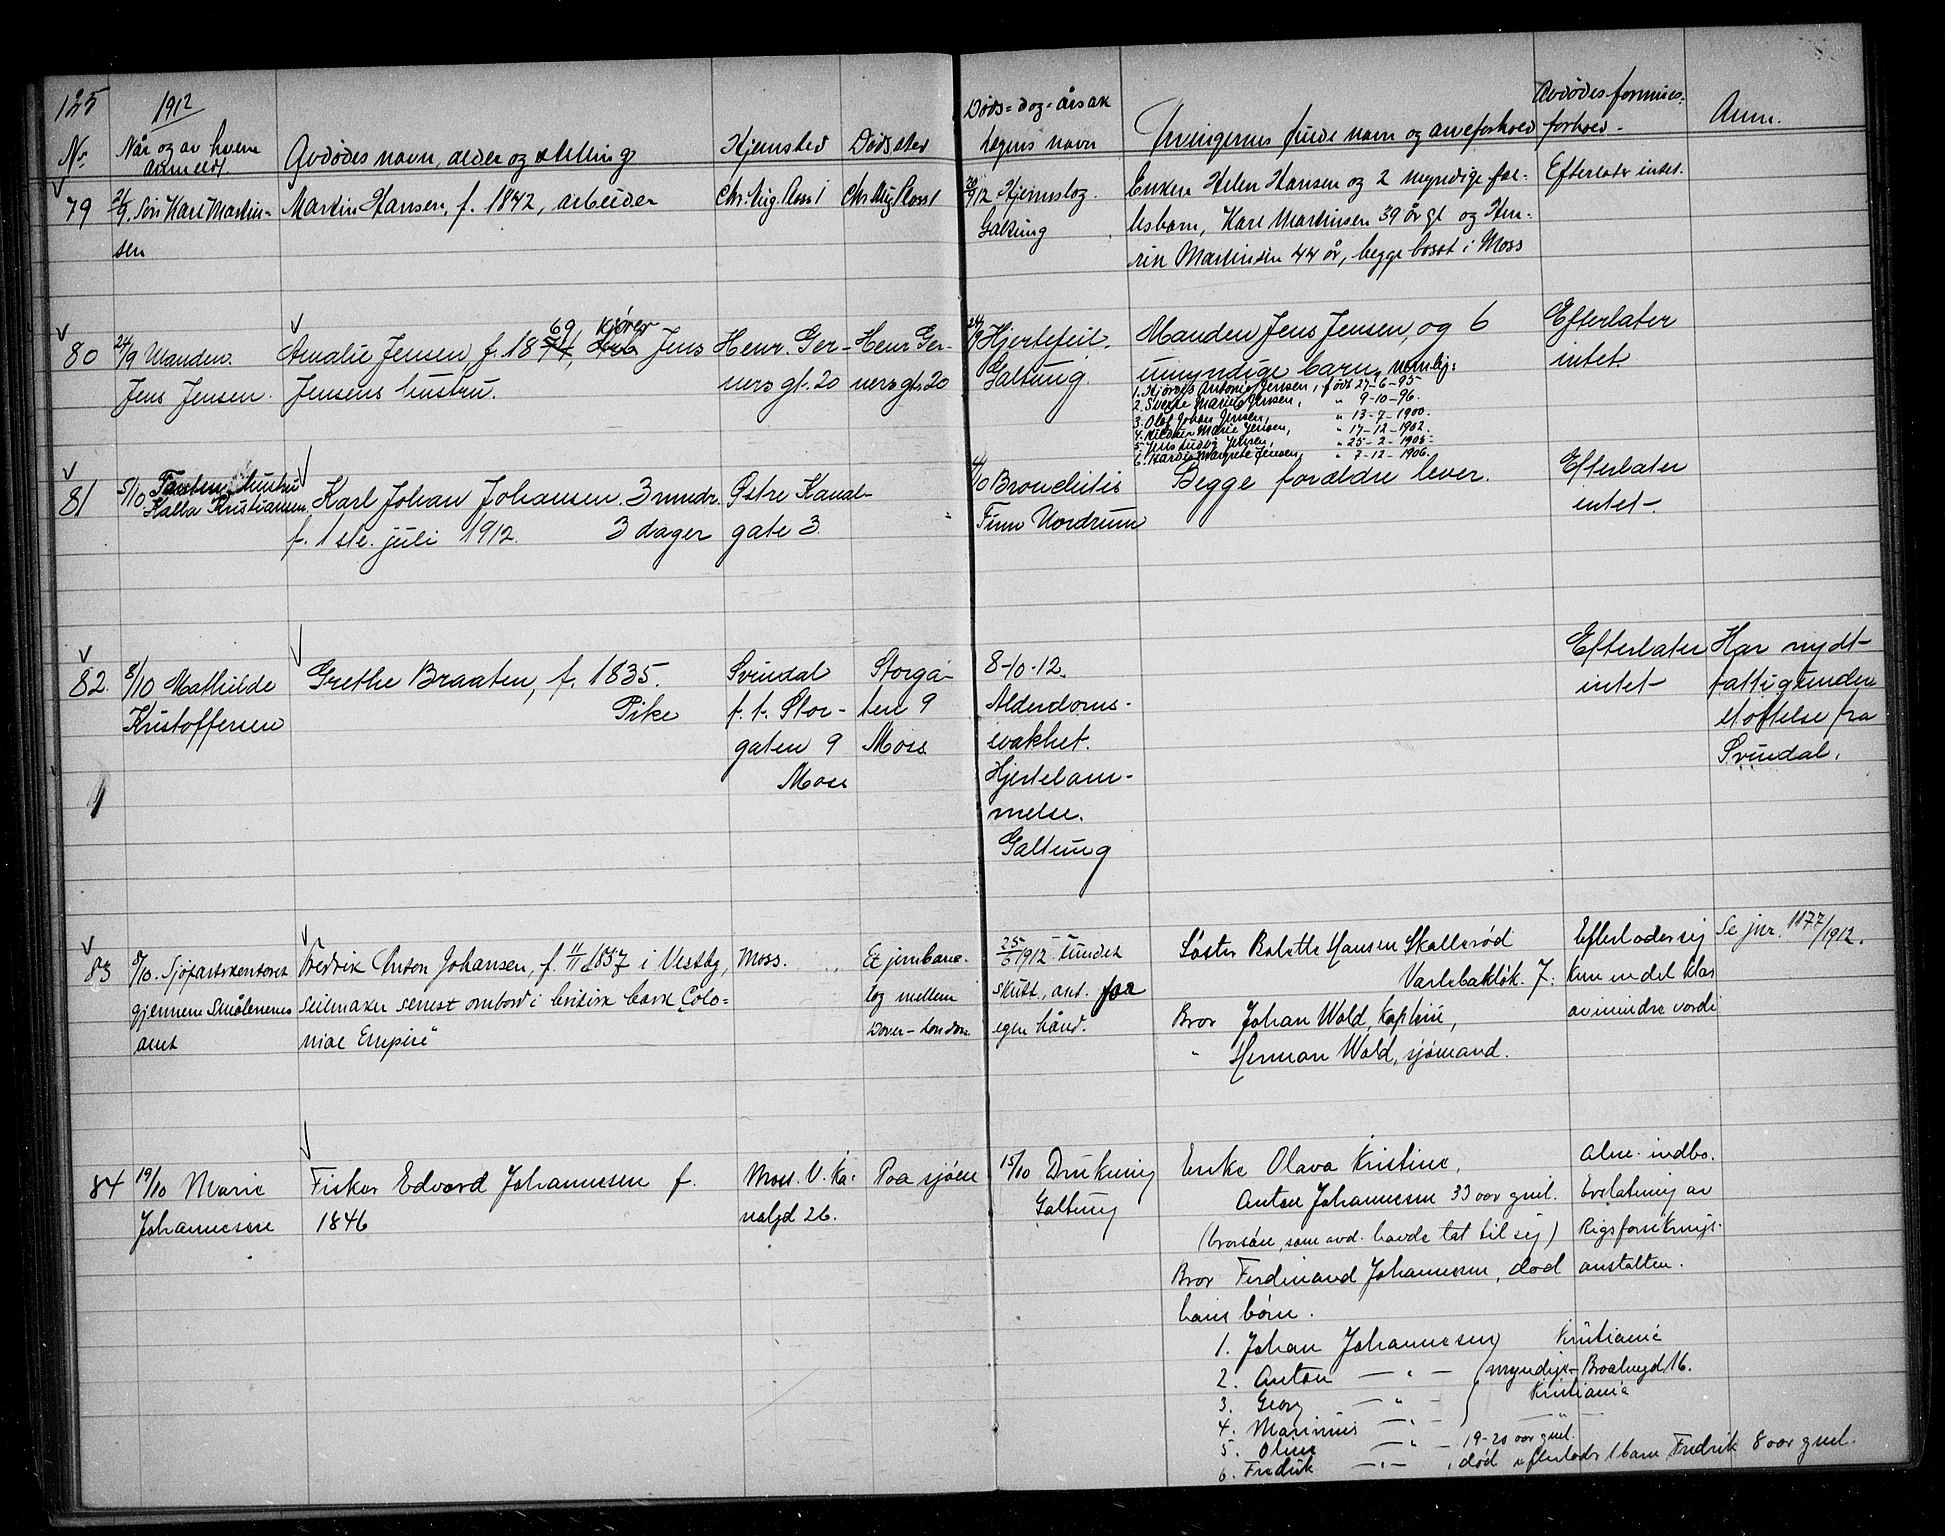 125
1912
No.
Når og av hvem
anmeldt.
Avdødes navn, alder og stilling
Hjemsted
Dødssted
Døds=dag=årsak
lægens navn
Arvingernes fulde navn og arveforhold
Avdødes formues=
forhold
Anm.
79
Søn Karl Martin-
sen
Martin Hansen, f. 1842, arbeider
Hjemslag.
Galtung
Enken Helen Hansen og 2 myndige fæl-
lesbarn, Karl Martinsen 39 år gl og Hen-
rik Martinsen 44 år, begge bosat i Moss
Efterlater intet.
80
24/9 Manden
Jens Jensen.
Amalie Jensen f. 1874, 69 Arb. kjører Jens
Jensens hustru.
Henr. Ger-
ners gt. 20
Henr Ger-
ners gt 20
24/9 Hjertefeil.
Galtung
Manden Jens Jensen, og 6
umyndige barn, nemlig:
1. Hjørdis Antonie Jensen, født 27-6-95
2. Sverre Marino Jensen, " 9-10-96.
3. Olaf Johan Jensen, " 13-7-1900.
4. Hildur Marie Jensen, " 17-12-1902.
5. Jens Ludvig Jensen, " 25-2-1905.
6. Hardis Margrete Jensen " 2-12-1906.
Efterlater
intet.
81
5/10 Tanten, hustru
Kalla Kristiansen
Karl Johan Johansen. 3 mndr.
f. 1ste juli 1912. 3 dager
Østre Kanal-
gate 3.
4/10 Bronchitis
Finn Nordrum
Begge forældre lever.
Efterlater
intet.
82.
8/10 Mathilde
Kristoffersen
Grethe Braaten, f. 1835.
Pike
Svindal
f. t. Stor-
gaten 9
Moss
Storga-
ten 9
Moss
8-10-12.
Alderdoms-
svakhet.
Hjertelam-
melse.
Galtung
Efterlater
intet
Har nydt
fattigunder
støttelse fra
Svindal.
83
8/10. Sjøfartskontoret
gjennem Smålenenes
amt
Fredrik Anton Johansen, f. 11/11 1857 i Vestby,
seilmaker senest ombord i britisk bark "Colo=
nial Empire"
Moss.
Et jernbane-
tog mellem
Dover-London
25/6 1912 Fundet
skutt, ant. for
egen hånd.
Søster Bolette Hansen Skallerød
Varlebakløk. 7.
Bror Johan Wold, kaptein,
" Herman Wold, sjømand.
Efterlader sig
kun en del klær
av mindre værdi
Se jnr. 1177/1912.
84
19/10 Marie
Johannessen
Fisker Edvard Johannessen f.
1846
Moss. V. Ka-
nalgd 26.
Paa sjøen
15/10 Drukning
Galtung
Enke Olava Kristine,
Anton Johannessen 33 aar gml.
(brorsøn, som avd. havde tat til sig)
Bror Ferdinand Johannessen, død
hans børn.
1. Johan Johannessen Kristiania
2. Anton — " — myndige
3. Georg — " — Kristiania
4. Marinius — " —
5. Oline — " — 19-20 aar gml.
6. Fredrik — " — , død efterlader 1 barn Fredrik 8 aar gml.
Alm. indbo.
Erstatning av
Rigsforsikrings-
anstalten.